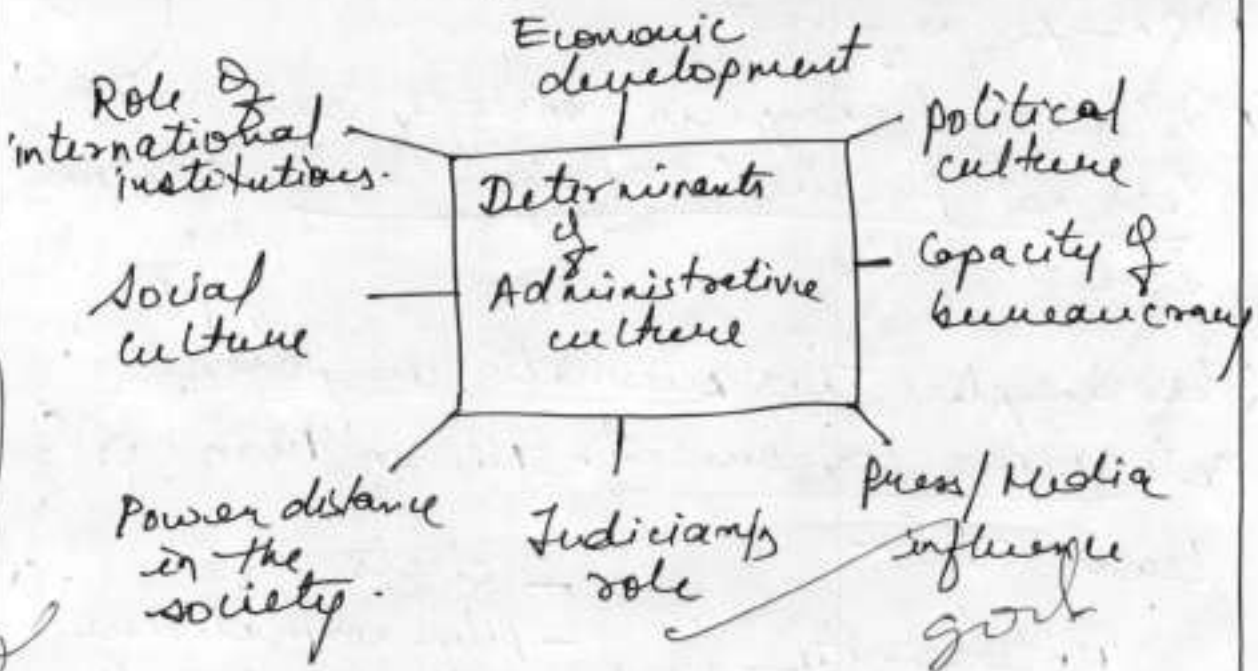 Economic
development
Role of
international
institutions.
political
culture
Determinants
of
Administrative
culture
Capacity of
bureaucracy
Social
culture
Power distance
in the
society.
Judiciary's
role
Press/Media
influence